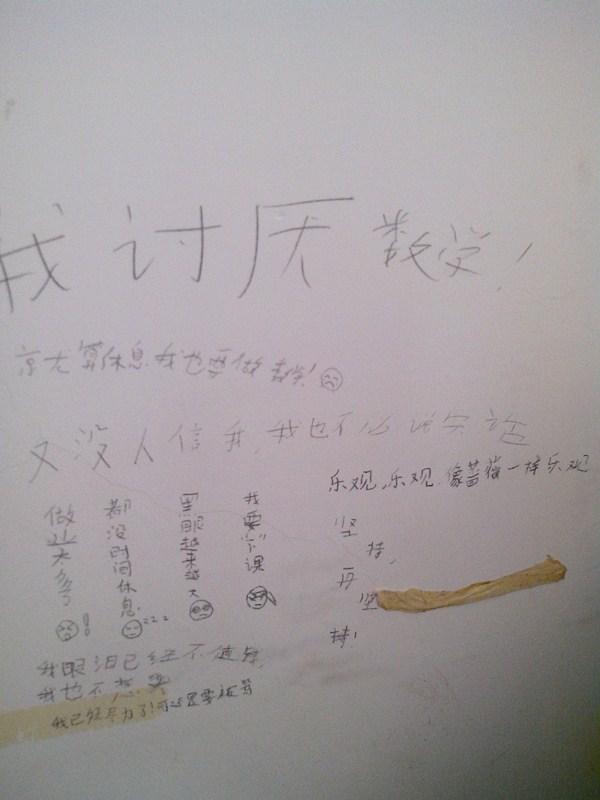 我讨厌数学!
就算休息我也要做数学!
又没人信我,我也不必说实话
乐观,乐观,像蔷薇一样乐观
做业太多了!
都没时间休息zzz
黑眼越来越大
我要下课
坚持,再坚持!
我眼泪已经不值钱
我也不想哭
我已经尽力了!可还是要被骂